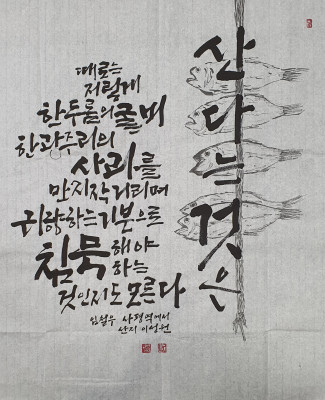 산다는것은
때로는
저렇게
한두릅의굴비
한광주리의
사과를
만지작거리며
귀향하는기분으로
침묵해야
하는
것인지도모른다
임철우 사평역에서
산지 이성원